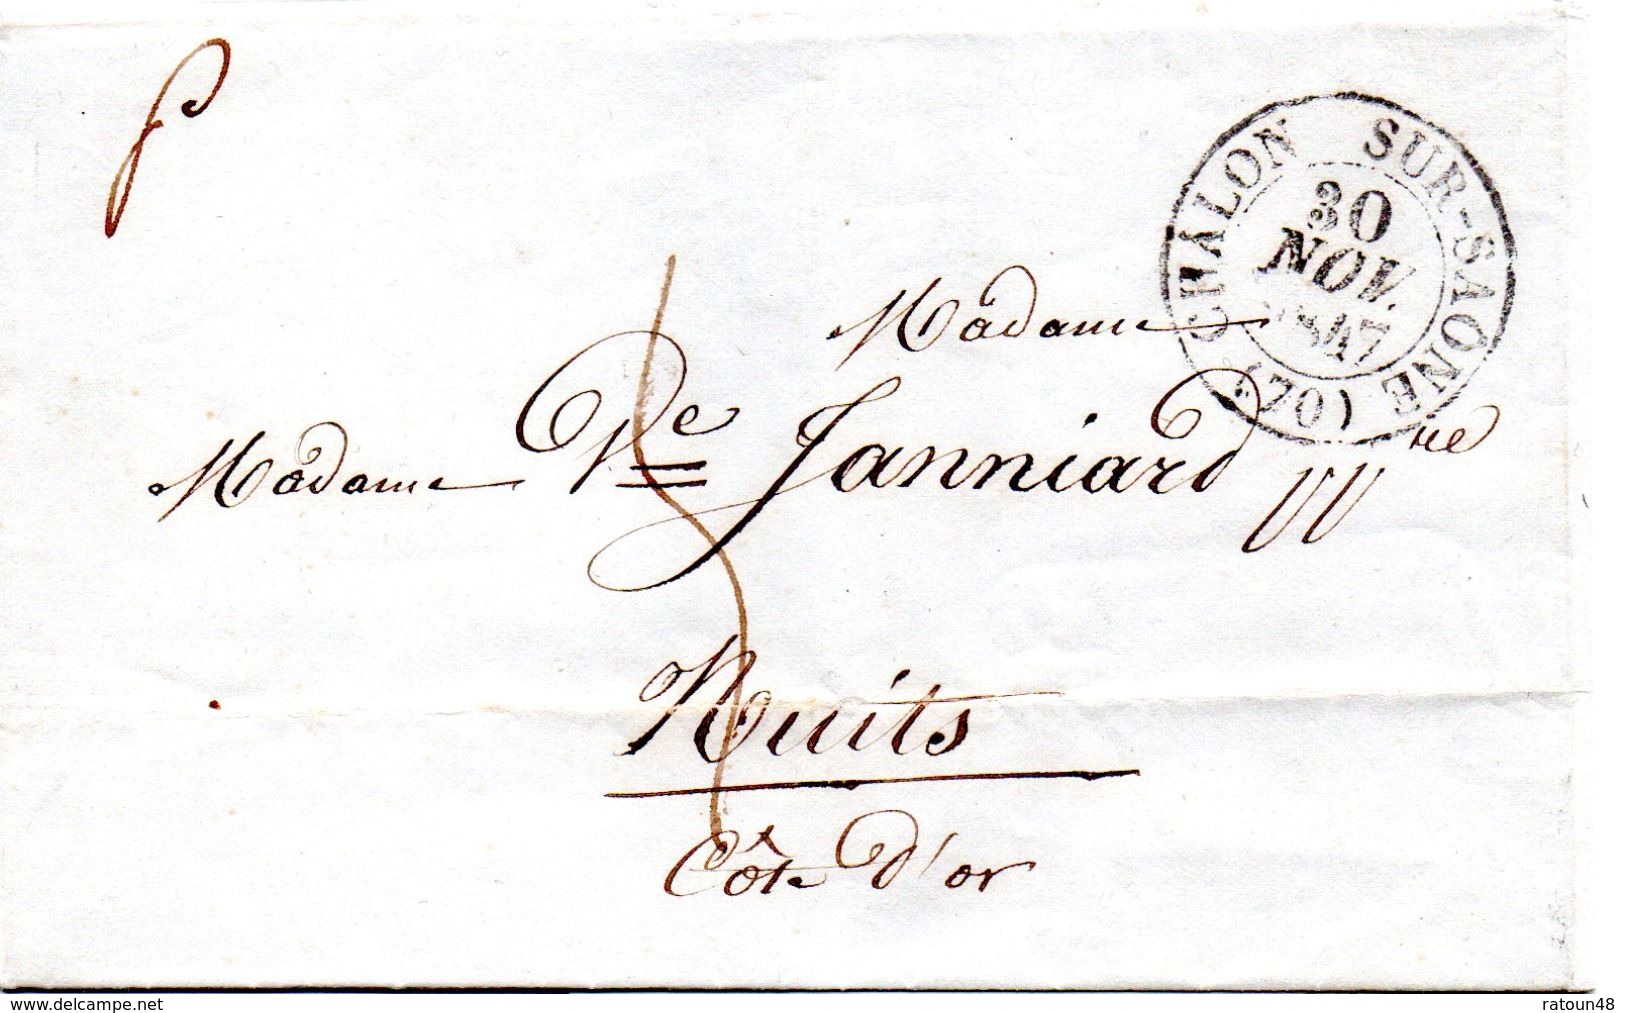 P
CHÂLON SUR-SAÔNE (70)
30
NOV.
1847
Madame
Madame Ve Janniard
Nuits
Côte d'or
www.delcampe.net
ratoun48